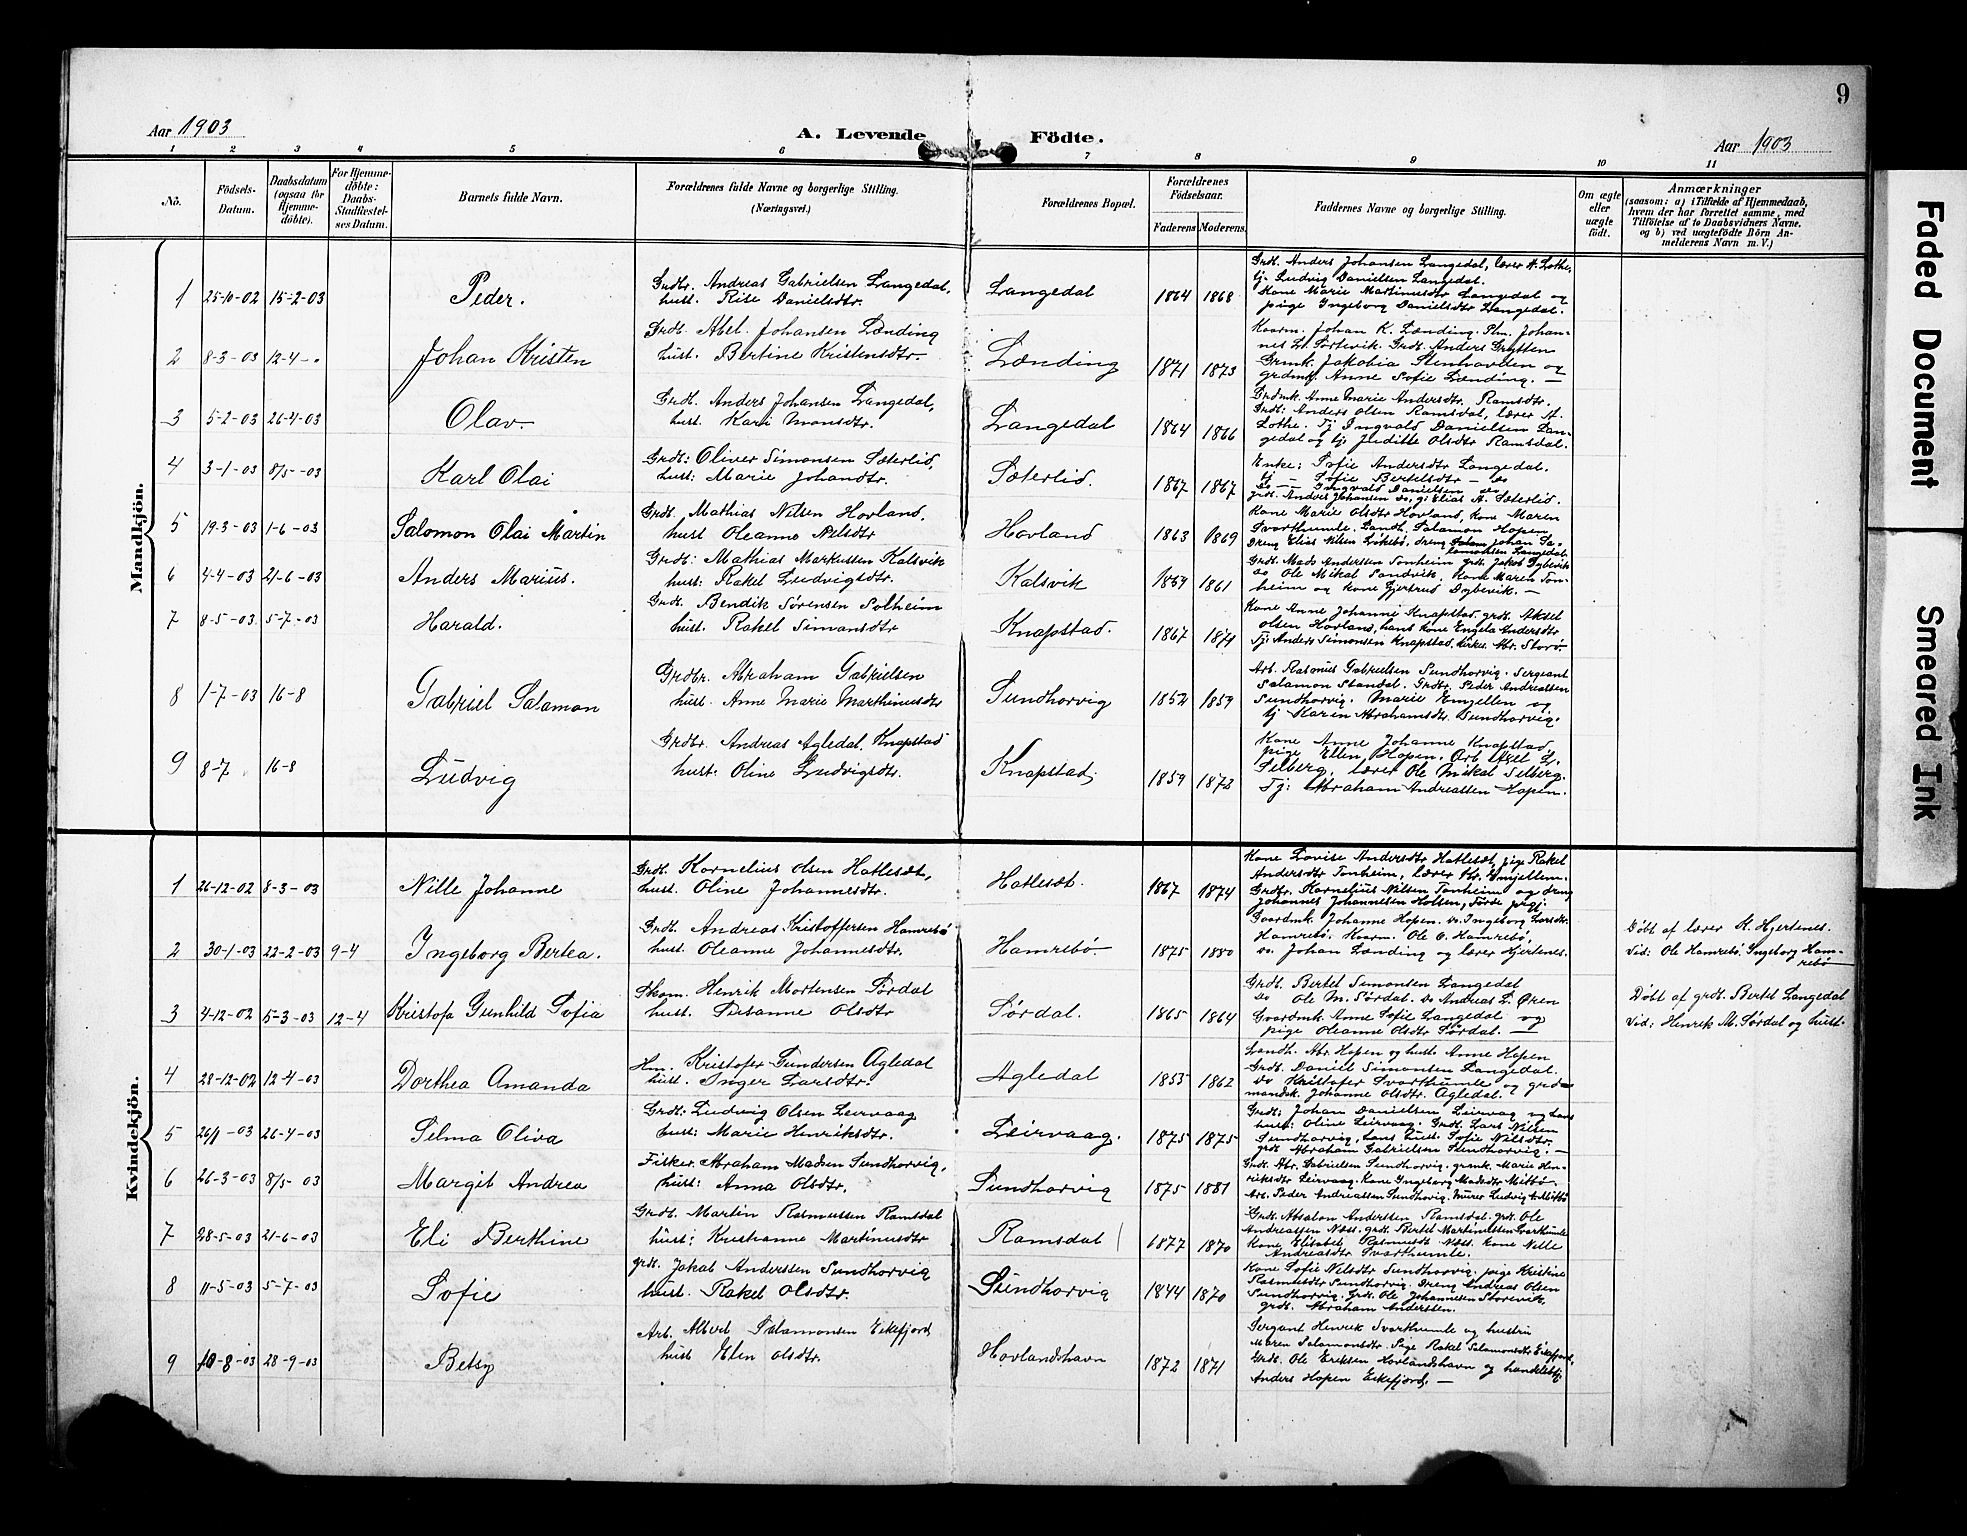 9
Aar 1903
A. Levende Födte.
Aar 1903
1 2 3 4 5 6 7 8 9 10 11
No.
Födsels-Datum.
Daabsdatum (ogsaa for Hjemme-döbte).
For Hjemme-döbte: Daabs-Stadfæstel-ses Datum.
Barnets fulde Navn.
Forældrenes fulde Navne og borgerlige Stilling.
(Næringsvei.)
Forældrenes Bopæl.
Forældrenes Födselsaar.
Faderens Moderens
Faddernes Navne og borgerlige Stilling.
Om ægte eller uægte födt.
Anmærkninger
(saasom: a) i Tilfælde af Hjemmedaab,
hvem der har forrettet samme, med
Tilföielse af to Daabsvidners Navne,
og b) ved uægtefödte Börn An-
melderens Navn m. V.)
Mandkjön.
1 25-10-02 15-2-03 Peder. Grdbr. Andreas Gabrielsen Langedal, hust. Rise Danielsdtr. Langedal 1864 1868
Grdb. Anders Johansen Langedal, lærer A. Lothe,
tj. Ludvig Danielsen Langedal.
Kone Marie Martinusdtr Langedal og
pige Ingeborg Danielsdtr Langedal.
2 8-3-03 12-4-" Johan Kristen Grdb. Abel Johansen Lænding hust. Bertine Kristensdtr. Lænding 1871 1873
Kaarm. Johan K. Lænding. Plm. Johan-
nes L. Sørtevik. Grdb. Anders Grytten
Grmk. Jakobia Stenhovden og
grdmk. Anne Sofie Lænding.
3 5-2-03 26-4-03 Olav. Grdb. Anders Johansen Langedal, hust. Kari Monsdtr. Langedal 1864 1866
Grdmk. Anne Marie Andersdtr. Ramsdr.
Grdb: Anders Olsen Ramsdal, lærer A.
Lothe. Tj Ingvald Danielsen Lan-
gedal og tj. Juditte Olsdtr Ramsdal.
4 3-1-03 8/5-03 Karl Olai Grdb: Oliver Simonsen Sæterlid, hust: Marie Johansdtr. Sæterlid. 1867 1867
Enke: Sofie Andersdtr Langedal.
tj - Sofie Bertelsdtr - do
Do - - Ingvald Danielsen do
grdb. Anders Johansen do, gj. Elias A. Sæterlid.
5 19-3-03 1-6-03 Salomon Olai Martin Grdb. Mathias Nilsen Hovland, hust Oleanne Nilsdtr Hovland 1863 1869
Kone Marie Olsdtr Hovland, kone Maren
Svorthumle. Landh. Salamon Hopen
Dreng Elias Nilsen Løkebø, dreng Johan Sa-
lamonsen Langedal
6 4-4-03 21-6-03 Anders Marius. Grdb: Mathias Markussen Kalsvik hust: Rakel Ludvigsdtr. Kalsvik 1859 1861
Grdb. Mads Anderssen Tonheim grdb. Jakob Dybevik
do Ole Mikal Sandvik, Kone Maren Ton-
heim og kone Gjertrud Dybevik.
7 8-5-03 5-7-03 Harald. Grdb. Bendik Sørensen Solheim hust. Rakel Simonsdtr Knapstad. 1867 1871
Kone Anne Johanne Knapstad grdb. Aksel
Olsen Hovland, hans kone Engela Andersdtr
Tj: Anders Simonsen Knapstad, Kirkes. Abr. Storø
8 1-7-03 16-8 Gabriel Salamon Grdbr. Abraham Gabrielsen hust. Anne Marie Marthinusdtr Sundhorvig 1852 1859
Arb. Rasmus Gabrielsen Sundhorvig. Sergeant
Salamon Standal. Grdbr. Peder Andreassen
Sundhorvig. Marie Emjellen og
tj Karen Abrahamsdtr. Sundhorvig.
9 8-7 16-8 Ludvig Grdbr. Andreas Agledal, Knapstad hust: Oline Ludvigsdtr. Knapstad; 1859 1872
Kone Anne Johanne Knapstad,
pige Ellen Hopen. Arb Axel L.
Selberg, lærer Ole Mikal Selberg.
Tj: Abraham Andreassen Hopen.
Kvindekjön.
1 26-12-02 8-3-03 Nille Johanne Grdb. Kornelius Olsen Hatlesæt, hust. Oline Johannesdtr. Hatlesæt. 1867 1874
Kone Lovise Andersdtr Hatlesæt, pige Rakel
Andersdtr Tonheim, lærer Kr. Emjellem.
Grdbr. Kornelius Nilsen Tonheim og dreng
Johannes Johannessen Holsen, Førde prgj.
2 30-1-03 22-2-03 9-4 Ingeborg Bertea. Grdb. Andreas Kristoffersen Hamrebø hust. Oleanne Johannesdtr. Hamrebø. 1875 1880
Gaardmk. Johanne Hopen. do. Ingeborg Larsdtr
Hamrebø. Kaarm. Ole O. Hamrebø,
do. Johan Lænding og lærer Hjertenes.
Døbt af lærer K. Hjertenes.
Vid: Ole Hamrebø, Ingeborg Ham-
rebø
3 4-12-02 5-3-03 12-4 Kristofa Gunhild Sofia Skom. Henrik Mortensen Sørdal hust. Susanne Olsdtr Sørdal. 1865 1864
Grdb. Bertel Simonsen Langedal
do Ole M. Sørdal. do Andreas L. Øren
Gaardmk. Anne Sofie Langedal og
pige Oleanne Olsdtr Sørdal.
Døbt af grdb. Bertel Langedal
Vid: Henrik M. Sørdal og hust.
4 28-12-02 12-4-03 Dorthea Amanda Hm. Kristofer Gundersen Agledal hust. Inger Larsdtr. Agledal 1853 1862
Landh. Abr. Hopen og hust. Anne Hopen
Grdb. Daniel Simonsen Langedal.
do Kristofer Svarthumle og grd-
mandsk. Johanne Olsdtr. Agledal.
5 26/1-03 26-4-03 Selma Oliva Grdb: Ludvig Olsen Leirvaag hust: Marie Henriksdtr. Leirvaag. 1875 1875
Grdb: Johan Danielsen Leirvaag og hans
hust: Oline Leirvaag. Grdb. Lars Nilsen
Sundhorvig, hans hust. Sofie Nilsdtr.
grdb Abraham Gabrielsen Sundhorvig.
6 26-3-03 8/5-03 Margit Andrea Fisker. Abraham Madsen Sundhorvig, hust: Anna Olsdtr. Sundhorvig 1875 1881
Grdb. Abr. Gabrielsen Sundhorvig. grmk. Marie Hen-
riksdtr Leirvaag. Kone Yngeborg Madsdtr Mittbø
Arb. Peder Andreassen Sundhorvig. Murer Ludvig
7 28-5-03 21-6-03 Eli Berthine Grdb. Martin Rasmussen Ramsdal hust: Kristianne Martinusdtr Ramsdal 1877 1870
Grdb. Absalon Anderssen Ramsdal. grdb. Ole
Andreassen Næss. grdb. Bertel Martinussen Svarthumle
Kone Elisabet Rasmusdtr Næss. kone Nille
Andreasdtr Svarthumle.
8 11-5-03 5-7-03 Sofie grdb. Jakob Anderssen Sundhorvig hust. Rakel Olsdtr. Sundhorvig 1844 1870
Kone Sofie Nilsdtr Sundhorvig. pige Kristine
Rasmusdtr Sundhorvig. Dreng Andreas Olsen
Sundhorvig. Grdb. Ole Johannesen Storevik
grdb. Abraham Anderssen.
9 10-8-03 28-9-03 Betsy Arb. Albert Salamonsen Eikefjord hust Elen Olsdtr. Hovlandshavn 1872 1871
Sergant Henrik Svarthumle og hustru
Maren Salamonsdtr. Pige Rakel Salamonsdtr Eikefjord,
Grdb. Ole Eriksen Hovlandshavn og handelsbtj.
Anders Hopen Eikefjord.
Faded Document
Smeared Ink